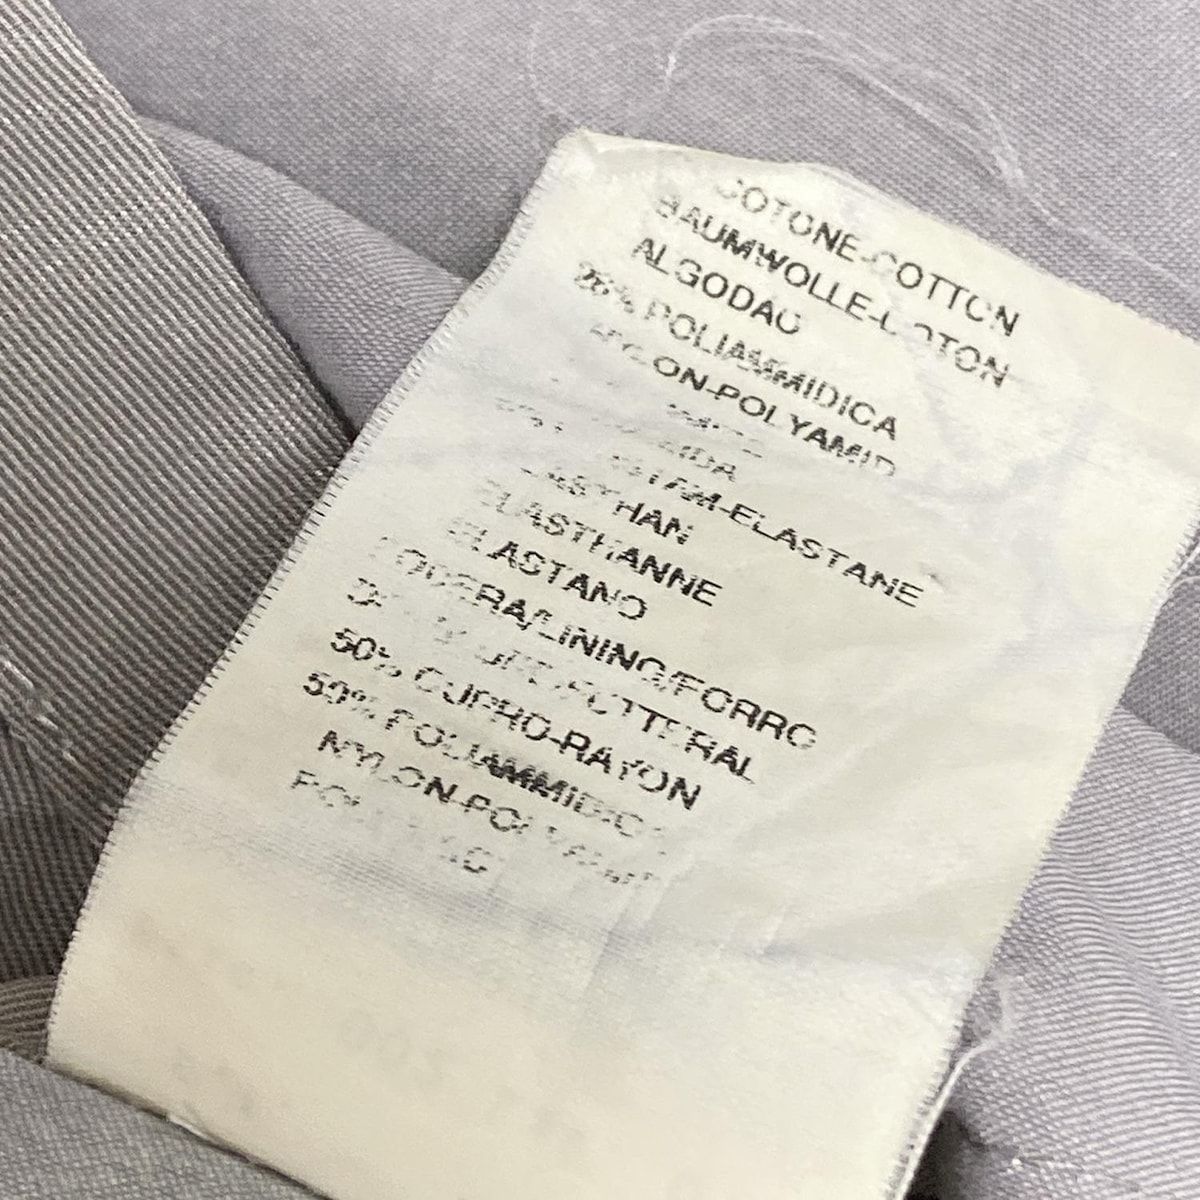 COTONE-COTTON
BAUMWOLLE-COTON
ALGODAO
26% POLIAMMIDICA
NYLON-POLYAMID
ELASTAM-ELASTANE
ELASTHAN
ELASTHANNE
ELASTANO
FODERA/LINING/FORRO
FUTTERAL
50% CUPRO-RAYON
50% POLIAMMIDICA
NYLON-POLYAMID